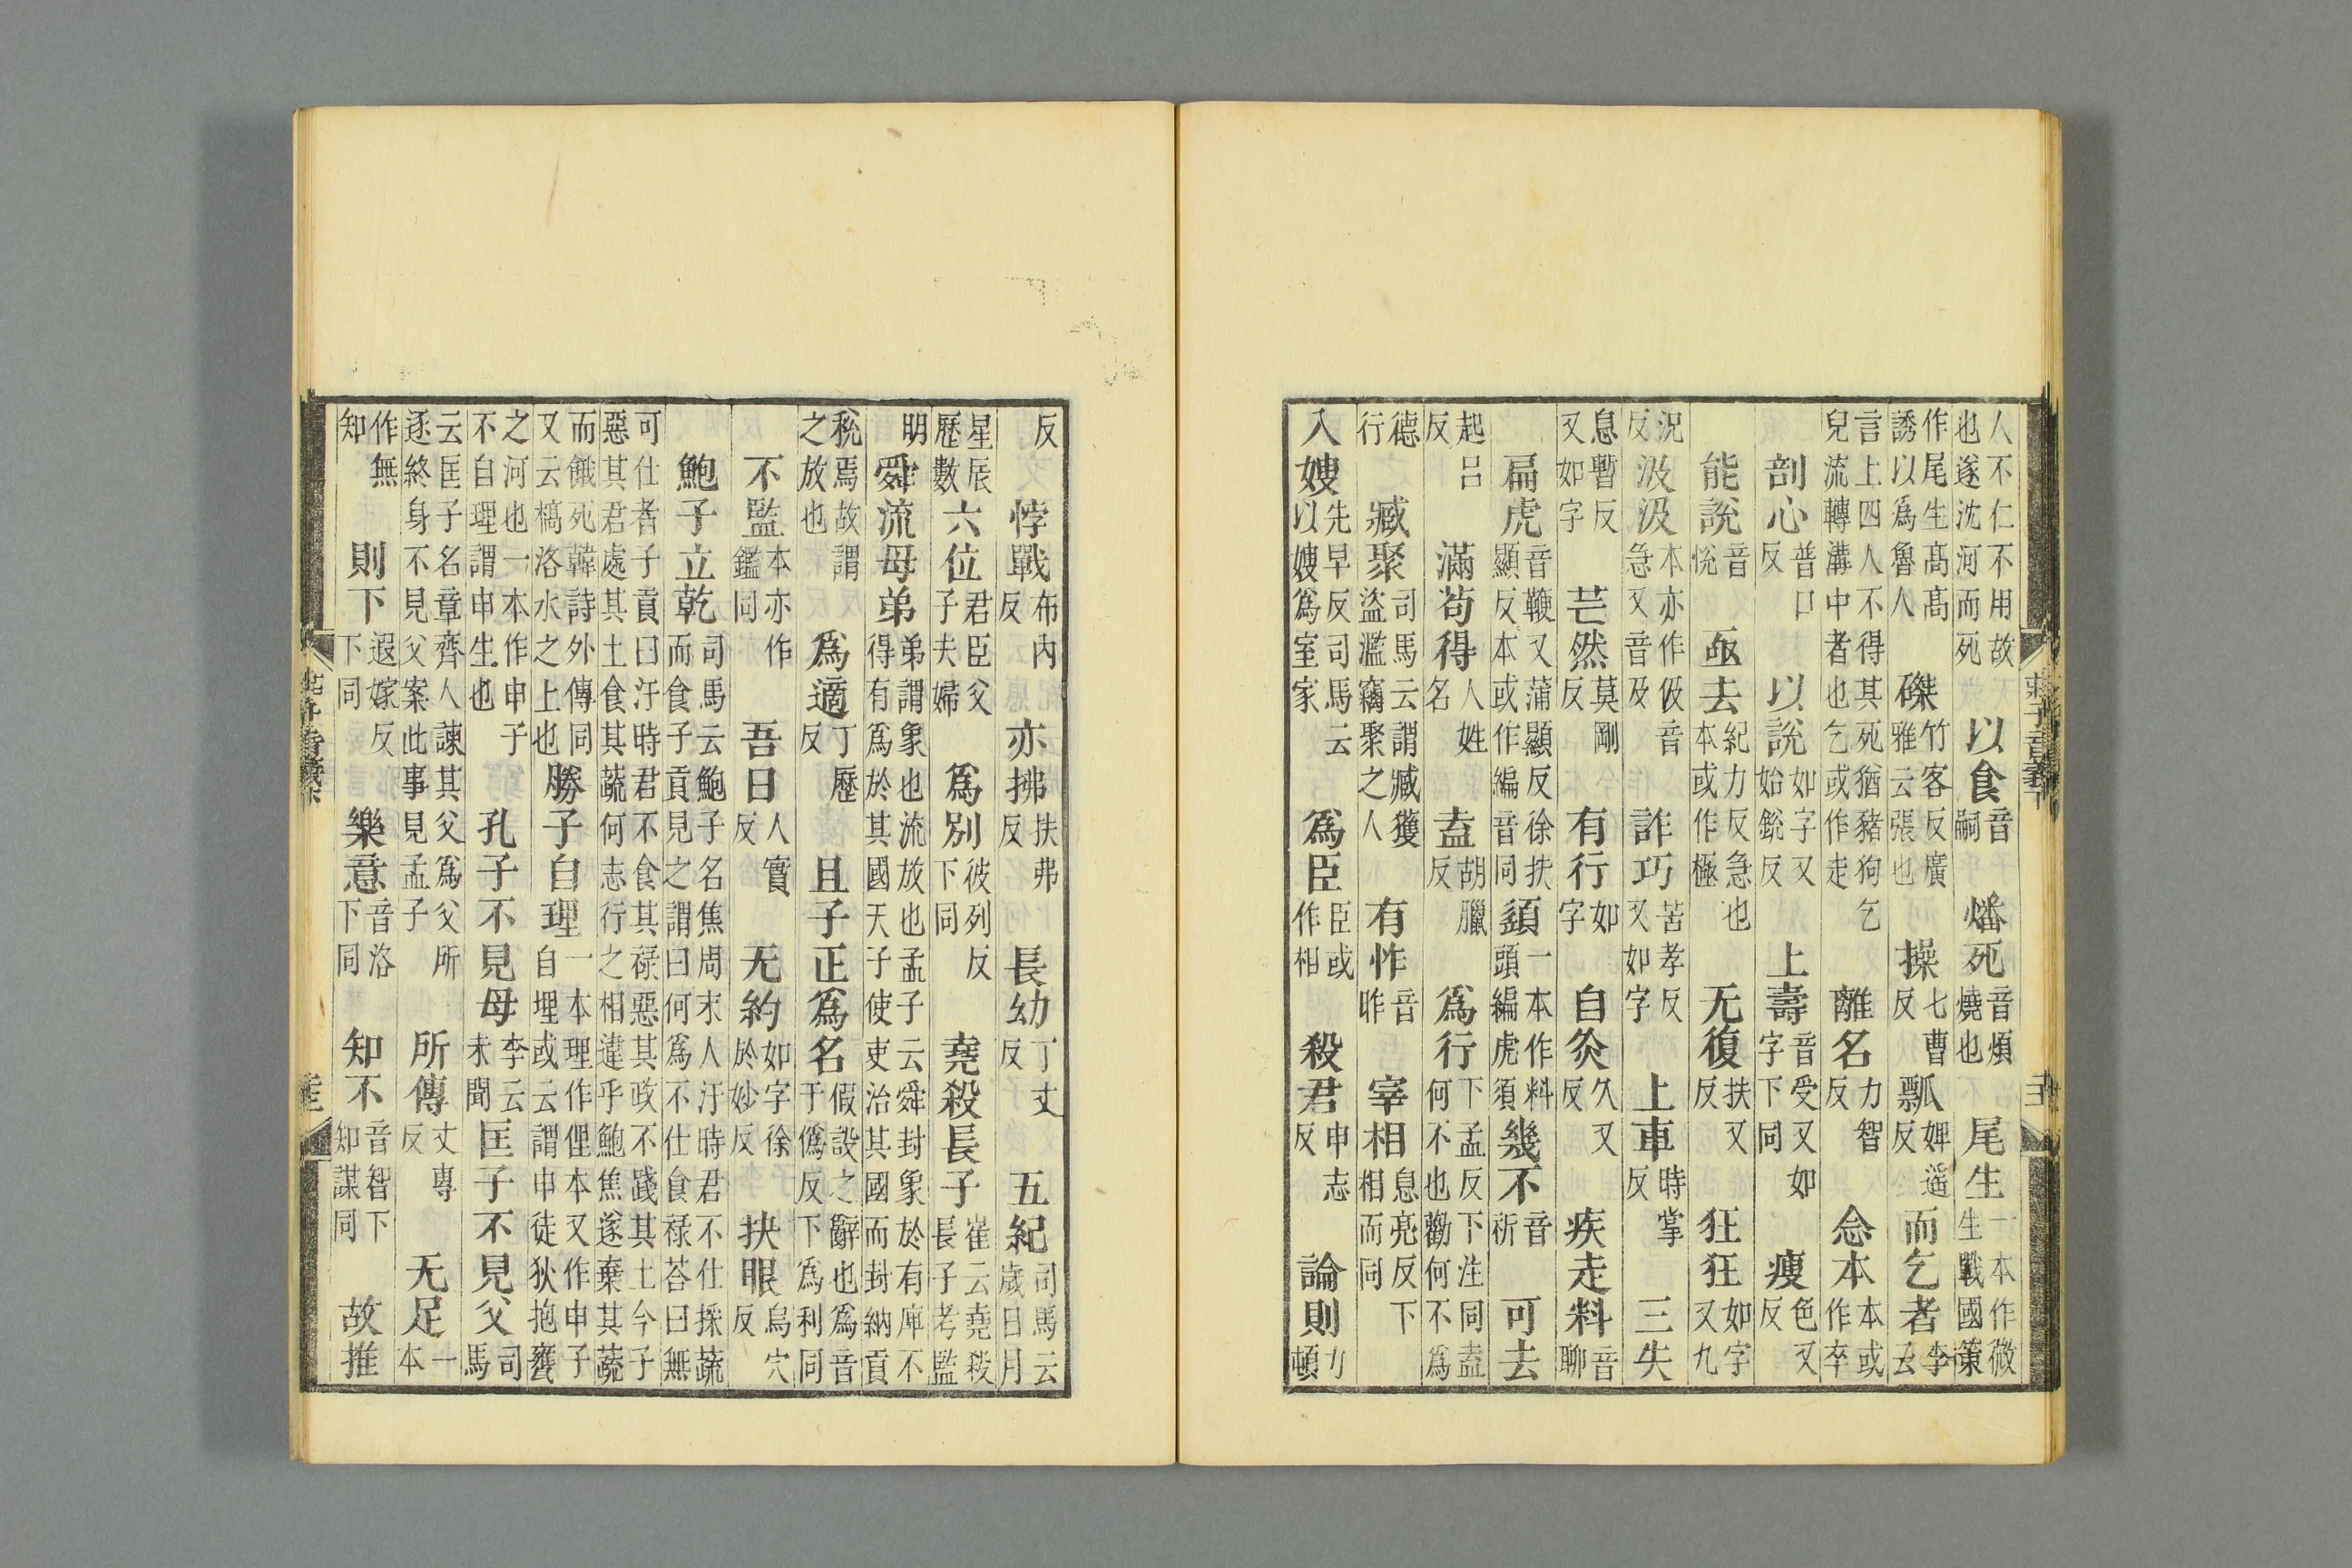 人不仁不用故也遂沈河而死 以食音嗣 燔死音煩燒也 尾生一本作微生戰國策
作尾生髙髙誘以爲魯人 磔竹客反廣雅云張也 操七曹反 瓢婢遥反 而乞者李云
言上四人不得其死猶豬狗乞兒流轉溝中者也乞或作走 離名力智反 念本本或作卒
剖心普口反 以說如字又始銳反 上壽音受又如字下同 瘦色又反
能說音悅 亟去紀力反急也本或作極 无復扶又反 狂狂如字又九
況反 汲汲本亦作伋音急又音及 詐巧苦孝反又如字 上車時掌反 三失
息暫反又如字 芒然莫剛反 有行如字 自灸久又反 疾走料音聊
扁虎音鞭又蒲顯反徐扶顯反本或作編音同 須一本作料頭編虎須 幾不音祈 可去
起呂反 滿苟得人姓名 盍胡臘反 爲行下孟反下注同盍何不也勸何不爲
德行 臧聚司馬云謂臧獲盜濫竊聚之人 有怍音昨 宰相息亮反下相而同
入嫂先早反司馬云以嫂爲室家 爲臣臣或作相 殺君申志反 論則力頓
反 悖戰布內反 亦拂扶弗反 長幼丁丈反 五紀司馬云歲日月
星辰歷數 六位君臣父子夫婦 爲別彼列反下同 堯殺長子崔云堯殺長子考監
明 舜流母弟弟謂象也流放也孟子云舜封象於有庳不得有爲於其國天子使吏治其國而封納貢
稅焉故謂之放也 爲適丁歷反 且子正爲名假設之辭也爲音于僞反下爲利同
不監本亦作鑑同 吾日人實反 无約如字徐於妙反 抉眼烏穴反
鮑子立乾司馬云鮑子名焦周末人汙時君不仕採蔬而食子貢見之謂曰何爲不仕食祿荅曰無
可仕者子貢曰汙時君不食其祿惡其政不踐其土今子惡其君處其土食其蔬何志行之相違乎鮑焦遂棄其蔬
而餓死韓詩外傳同又云槁洛水之上也 勝子自理一本理作俚本又作申子自埋或云謂申徒狄抱甕
之河也一本作申子不自理謂申生也 孔子不見母李云未聞 匡子不見父司馬
云匡子名章齊人諫其父爲父所逐終身不見父案此事見孟子 所傳丈專反 无足一本
作無知 則下遐嫁反下同 樂意音洛下同 知不音智下知謀同 故推